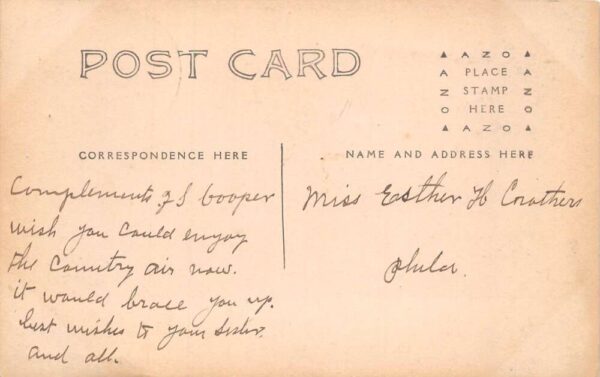 POST CARD
▲ A Z O ▲
A PLACE A
N STAMP N
O HERE O
▲ A Z O ▲
CORRESPONDENCE HERE
NAME AND ADDRESS HERE
Complements of S Cooper
wish you could enjoy
the Country air now.
it would brace you up.
best wishes to your Sister.
and all.
Miss Easther H Crothers
Phila.